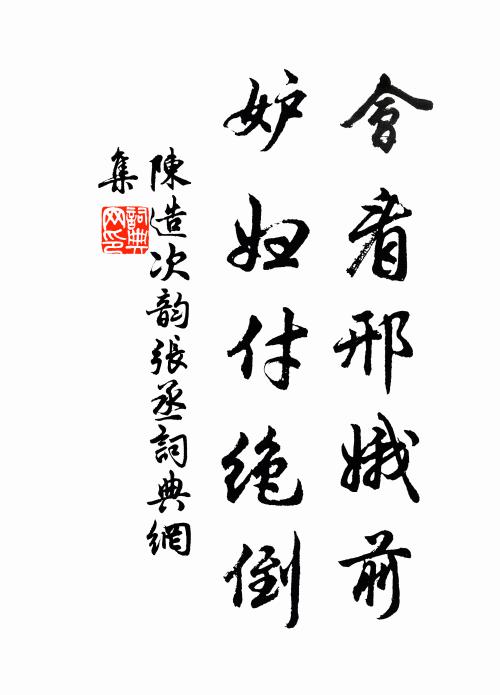 會看邢娥前
妒妇付绝倒
陳造次韵張丞詞典網
集
詞典網印